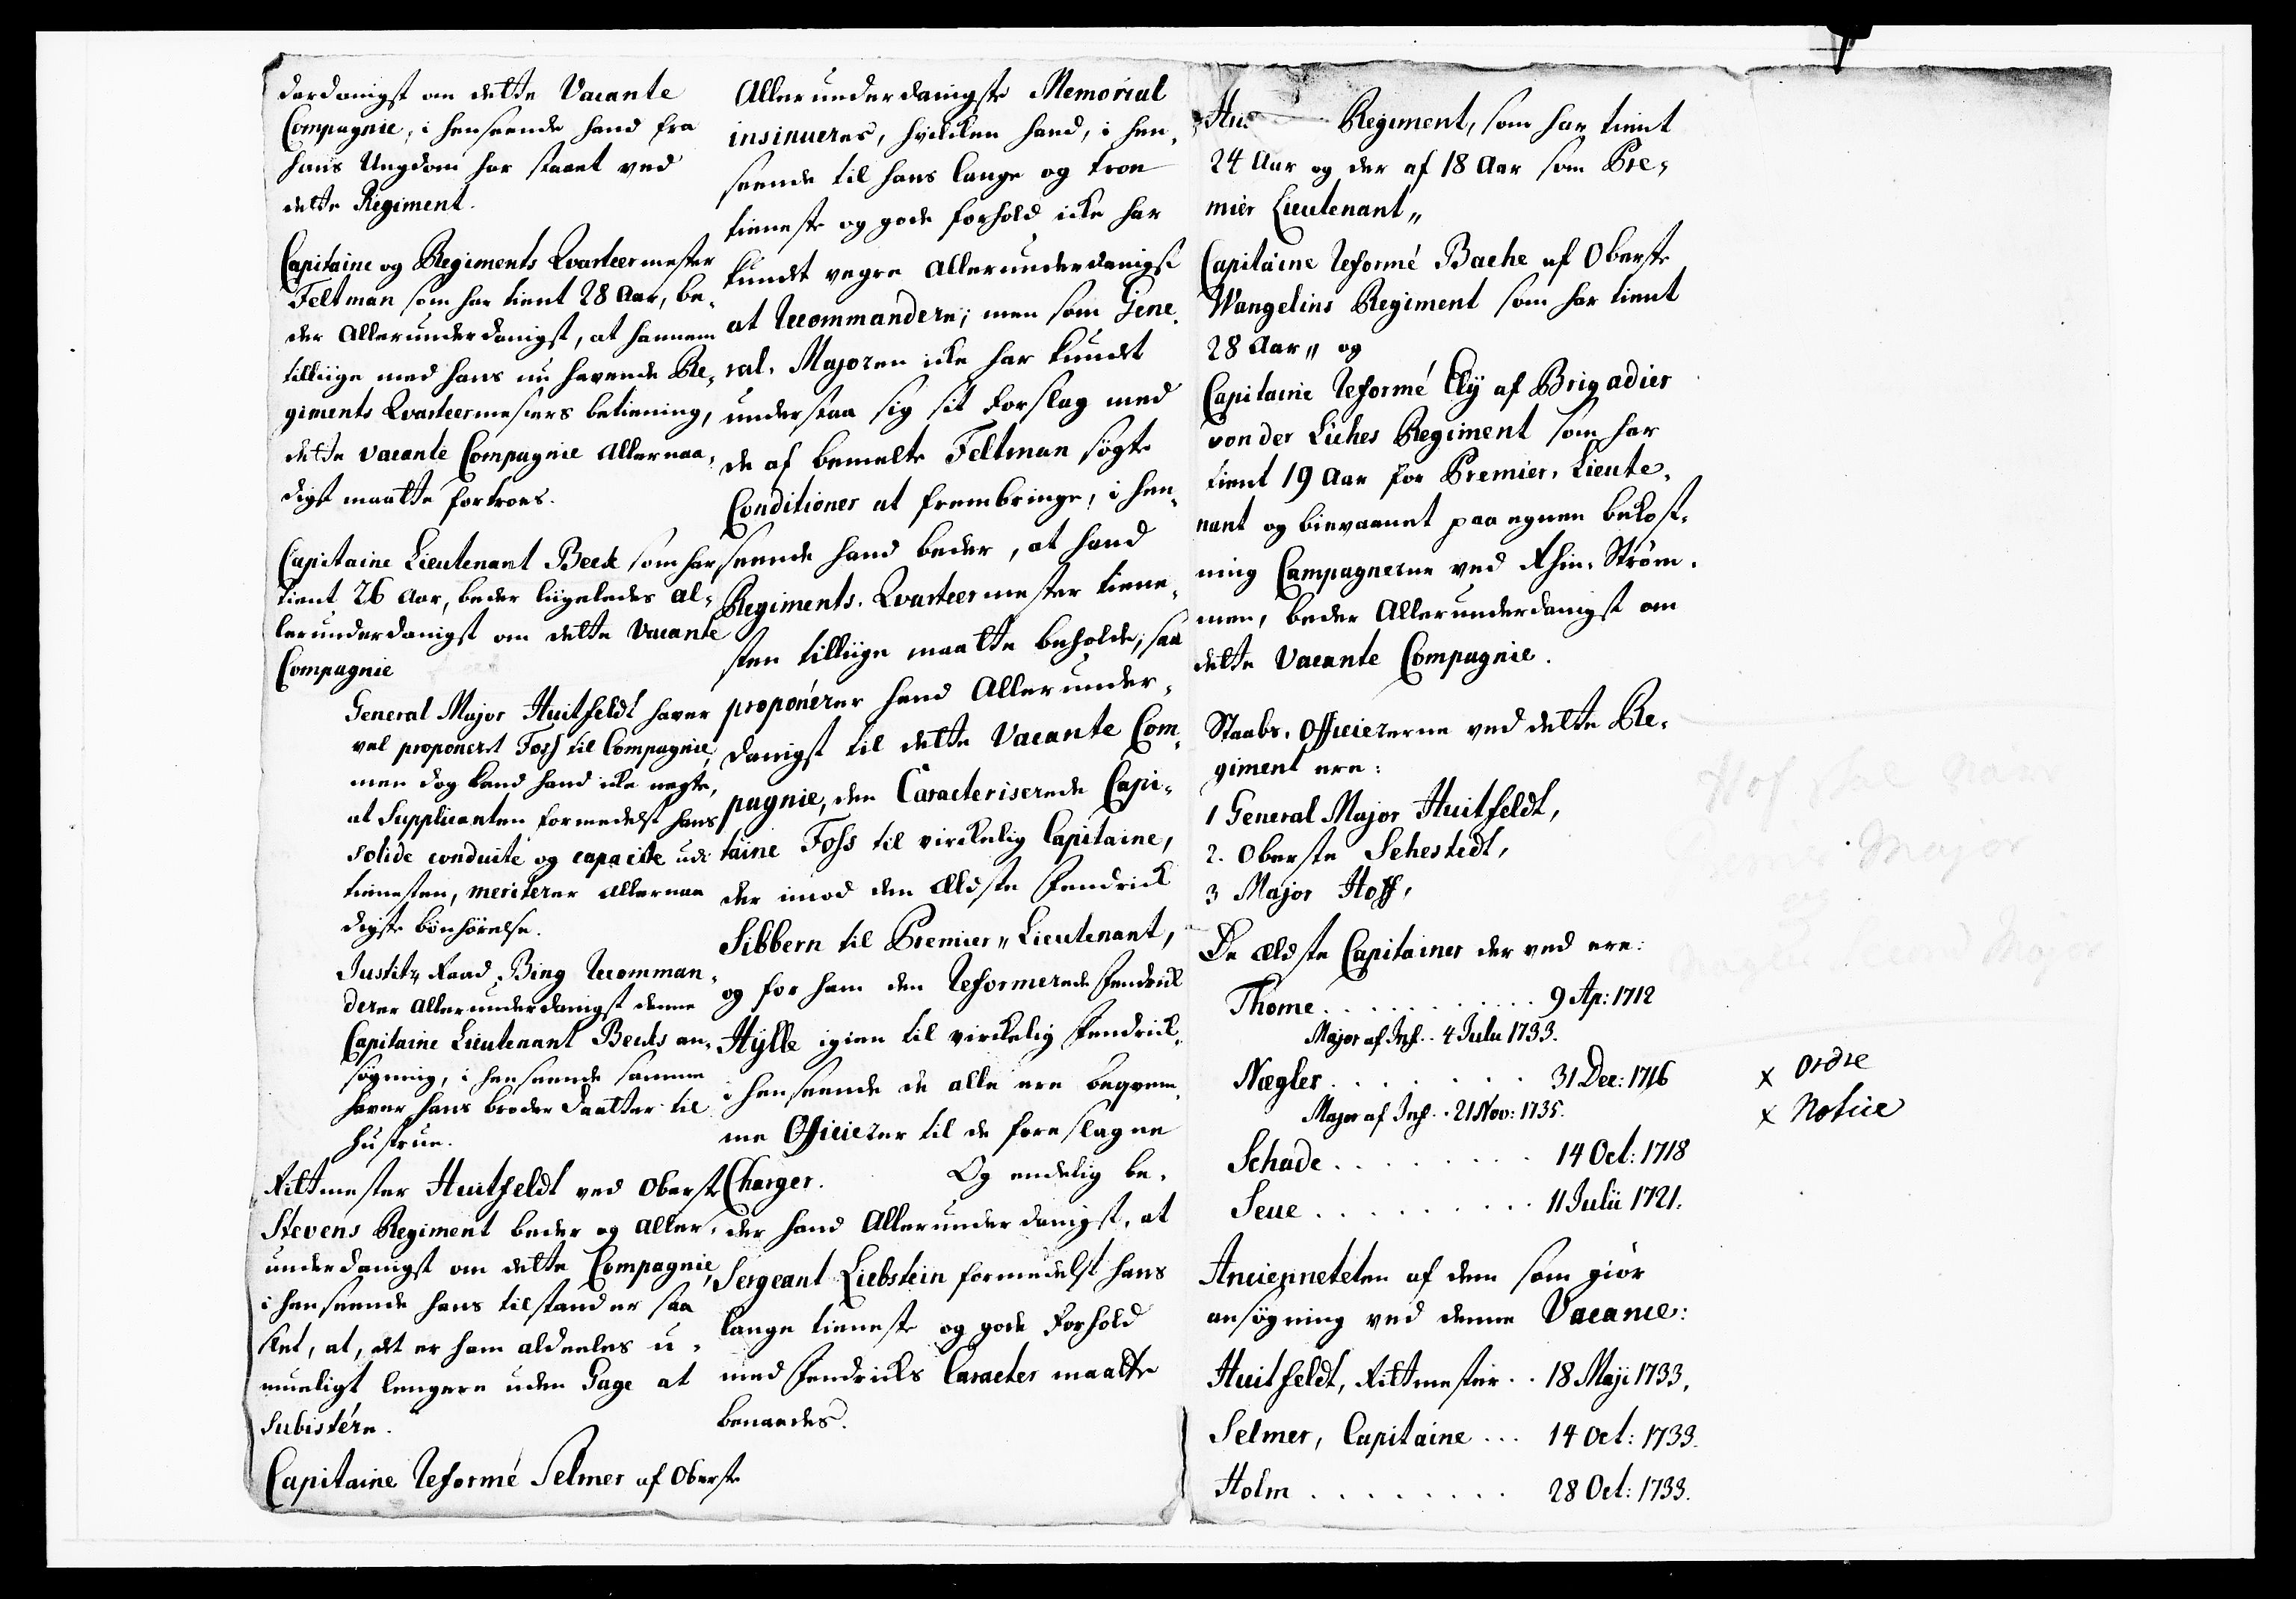 derdanigst om dette Vacante
Compagnie, i henseende hand fra
hans Ungdom har staaet ved
dette Regiment.
Capitaine og Regiments Qvarteermester
Feltman som har tient 28 Aar, be¬
der Allerunderdanigst, at hannem
tilliige med hans nu havende Re¬
giments Qvarteermesters betiening,
dette vacante Compagnie Allernaa¬
digst maatte fortroes.
Capitaine Lieutenant Beck som har
tient 26 Aar, beder liigeledes al¬
lerunderdanigst om dette Vacante
Compagnie
General Major Huitfeldt haver
vel proponeret Foss til Compagnie,
men dog kand hand icke negte,
at Supplicanten formedelst hans
solide conduite og capacite udi
tienesten, meriterer allernaa
digste bönhörelse.
Justitz Raad Bing recomman¬
derer allerunderdanigst denne
Capitaine Lieutenant Becks an¬
søgning, i henseende samme
haver hans broder daatter til
hustrue.
Rittmester Huitfeldt ved Oberst
Stevens Regiment beder og aller¬
underdanigst om dette Compagnie,
i henseende hans tilstand er saa
slet, at, det er ham aldeeles u¬
mueligt lengere uden Gage at
subistére.
Capitaine reformé Selmer af Oberste
Allerunderdanigste Memorial
insinueres, hvilcken hand, i hen¬
seende til hans lange og troe
tieneste og gode forhold icke har
kundt vegre allerunderdanigst
at recommandere; men som Gene¬
ral-Majoren icke har kundet
understaa sig sit forslag med
de af bemelte Feltman søgte
Conditioner at frembringe, i hen¬
seende hand beder, at hand
Regiments-Qvarteermester tiene¬
sten tilliige maatte beholde; saa
proponérer hand Allerunder¬
danigst til dette Vacante Com¬
pagnie, den Caracteriserede Capi¬
taine Foss til virckelig Capitaine,
der imod den Eldste Fendrick
Sibbern til Premier-Lieutenant,
og for ham den reformerede Fendrick
Hylle igien til virckelig Fendrick,
i henseende de alle ere beqvem¬
me Officierer til de foreslagne
Charger. Og endelig be¬
der hand Allerunderdanigst, at
Sergeant Liebstein formedelst hans
lange tieneste og gode forhold
med Fendricks Caracter maatte
benaades.
Regiment, som har tient
24 Aar og der af 18 Aar som Pre¬
mier Lieutenant,,
Capitaine reformé Bache af Oberste
Wangelins Regiment som har tient
28 Aar,, og
Capitaine reformé Ely af Brigadier
von der Lühes Regiment som har
tient 19 Aar for Premier-Lieute¬
nant og bievaanet paa egnen bekost¬
ning Campagnerne ved Rhin-Ström¬
men, beder Allerunderdanigst om
dette Vacante Compagnie.
Staabs-Officiererne ved dette Re¬
giment ere:
1 General Major Huitfeldt,
2. Oberste Sehestedt,
3 Major Hoff,
De Eldste Capitainer der ved ere:
Thome . . . . . . . . . . 9 Ap: 1712
Major af Inf. . 4 Julii 1733.
Nægler . . . . . . . 31 Dec: 1716
Major af Inf. . 21 Nov: 1735.
Schade . . . . . . . . 14 Oct: 1718
Seue . . . . . . . . . 11 Julii 1721.
Ancienneteten af dem som giör
ansögning ved denne Vacance:
Huitfeldt, Rittmester . . 18 Maji 1733,
Selmer, Capitaine . . . 14 Oct: 1733.
Holm . . . . . . . . 28 Oct: 1733.
x Ordre
x Notice
Major